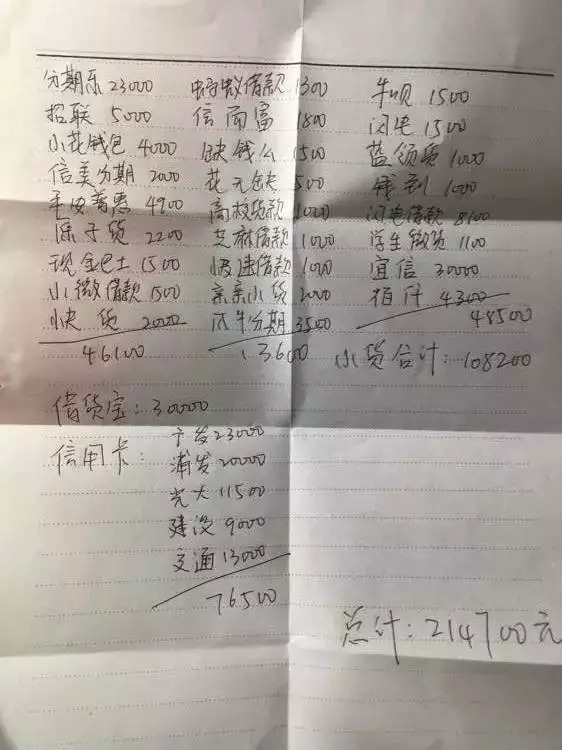 分期乐 23000
招联 5000
小花钱包 4000
信美分期 2000
平安普惠 4900
原子贷 2200
现金巴士 1500
小微借款 1500
快贷 2000
46100
蚂蚁借款 1300
信而富 1800
缺钱么 1500
花无缺 500
高校贷款 1000
芝麻借款 1000
快速借款 1000
亲亲小贷 2000
分期 3500
13600
牛呗 1500
闪电 1500
蓝领贷 1000
钱到 1000
闪电借款 8100
学生微贷 1100
宜信 30000
佰仟 4300
48500
小贷合计：108200
借贷宝：30000
信用卡：
广发 23000
浦发 20000
光大 11500
建设 9000
交通 13000
76500
总计：214700元